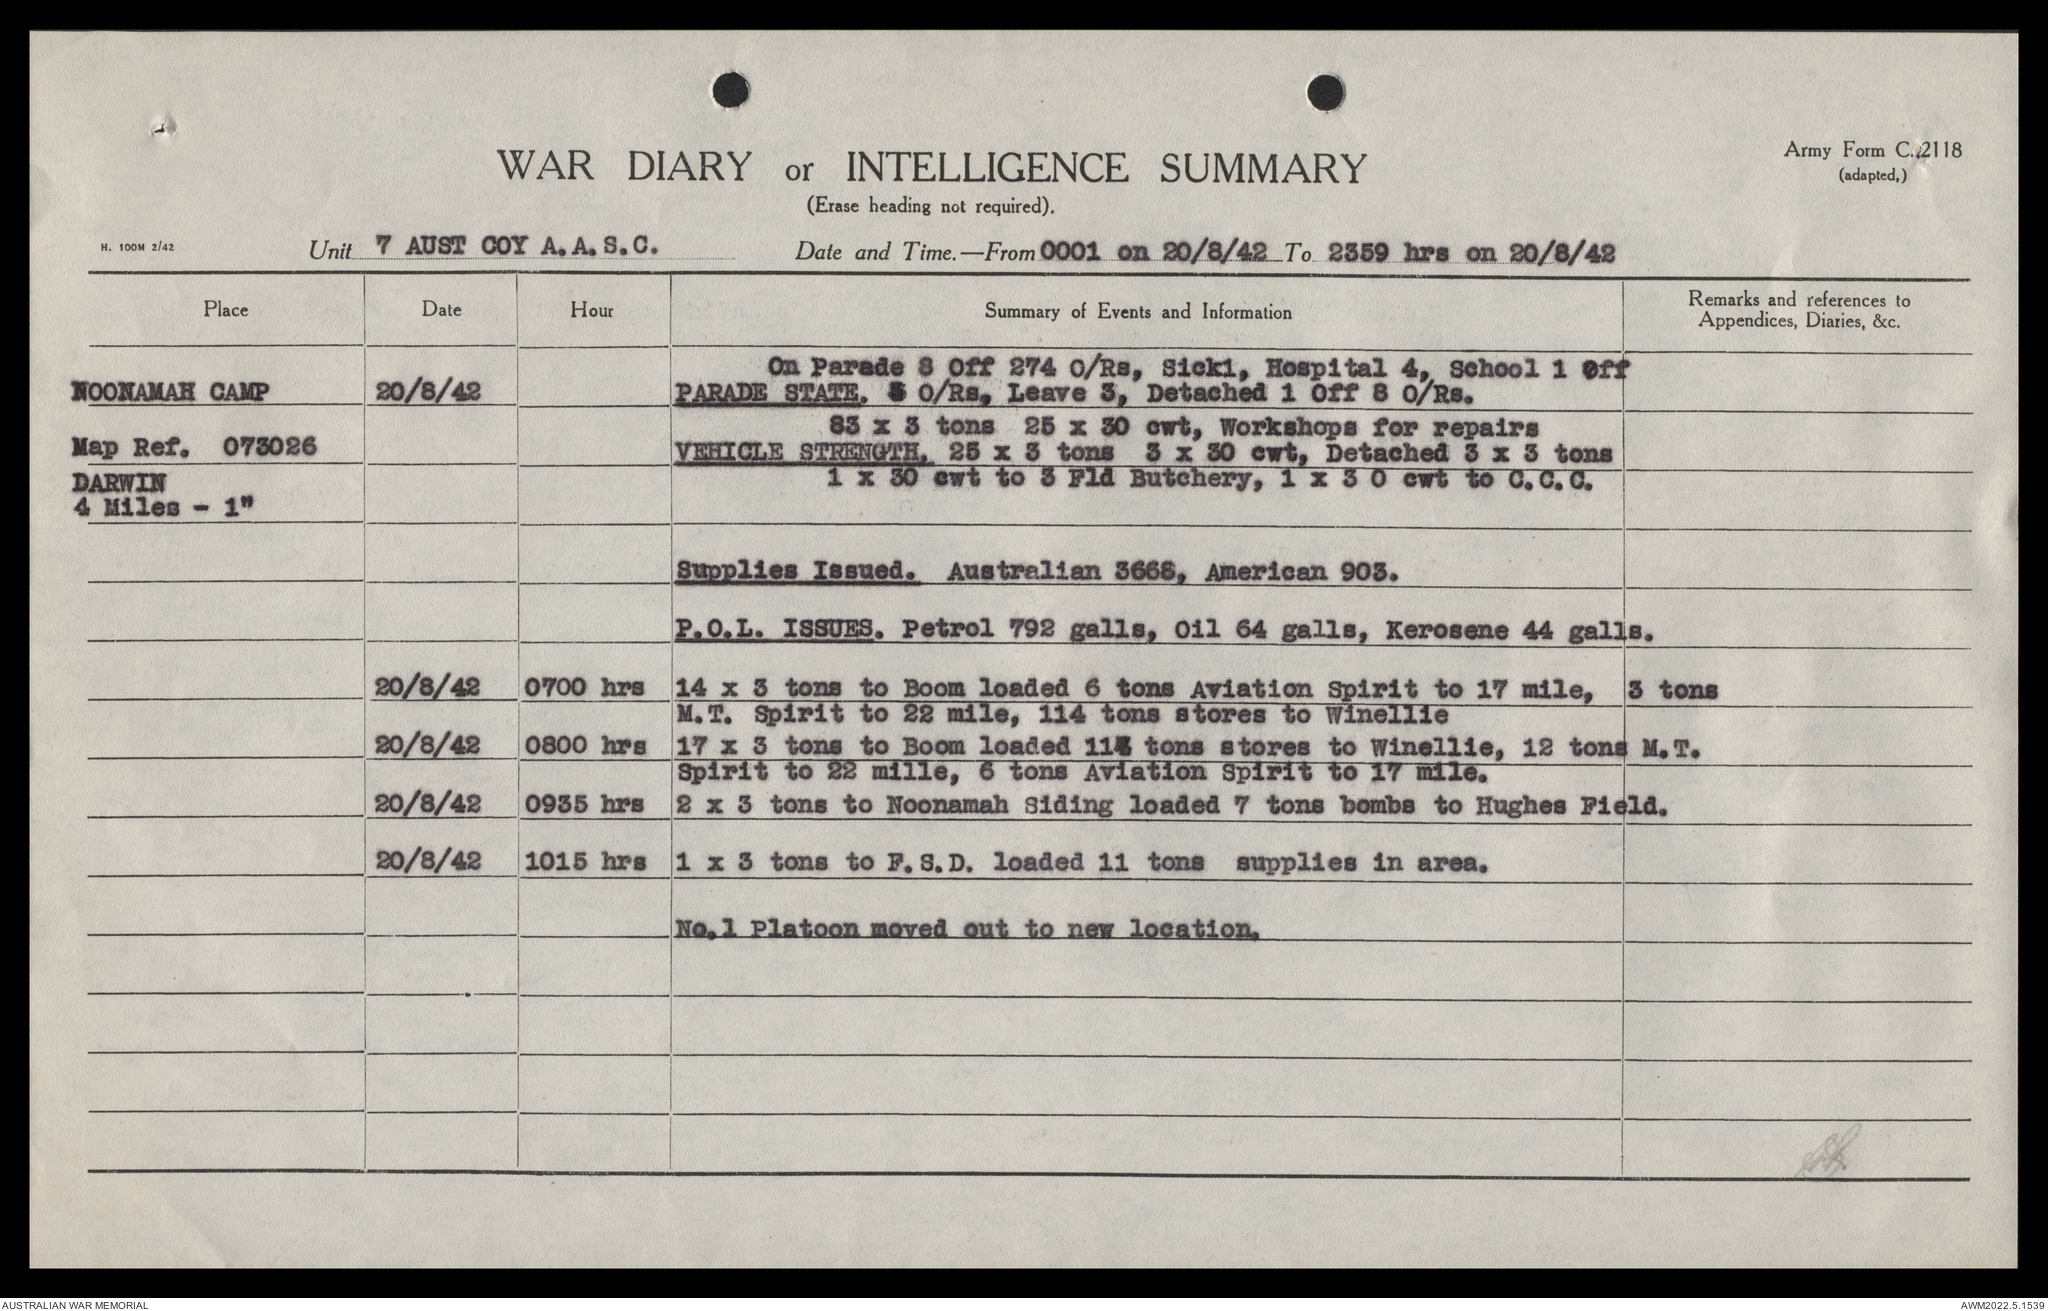 WAR DIARY or INTELLIGENCE SUMMARY
(Erase heading not required).
Army Form C. 2118
(adapted,)
H. 100M 2/42
Unit 7 AUST COY A.A.S.C.
Date and Time.—From 0001 on 20/8/42 To 2359 hrs on 20/8/42
Place Date Hour Summary of Events and Information Remarks and references to
Appendices, Diaries, &c.
On Parade 8 Off 274 O/Rs, Sick1, Hospital 4, School 1 Off
NOONAMAH CAMP 20/8/42 PARADE STATE. O/Rs, Leave 3, Detached 1 Off 8 O/Rs.
83 x 3 tons 25 x 30 cwt, Workshops for repairs
Map Ref. 073026 VEHICLE STRENGTH. 25 x 3 tons 3 x 30 cwt, Detached 3 x 3 tons
DARWIN 1 x 30 cwt to 3 Fld Butchery, 1 x 3 0 cwt to C.C.C.
4 Miles - 1"
Supplies Issued. Australian 3668, American 903.
P.O.L. ISSUES. Petrol 792 galls, Oil 64 galls, Kerosene 44 galls.
20/8/42 0700 hrs 14 x 3 tons to Boom loaded 6 tons Aviation Spirit to 17 mile, 3 tons
M.T. Spirit to 22 mile, 114 tons stores to Winellie
20/8/42 0800 hrs 17 x 3 tons to Boom loaded tons stores to Winellie, 12 tons M.T.
Spirit to 22 mille, 6 tons Aviation Spirit to 17 mile.
20/8/42 0935 hrs 2 x 3 tons to Noonamah Siding loaded 7 tons bombs to Hughes Field.
20/8/42 1015 hrs 1 x 3 tons to F.S.D. loaded 11 tons supplies in area.
No.1 Platoon moved out to new location.
AUSTRALIAN WAR MEMORIAL
AWM2022.5.1539